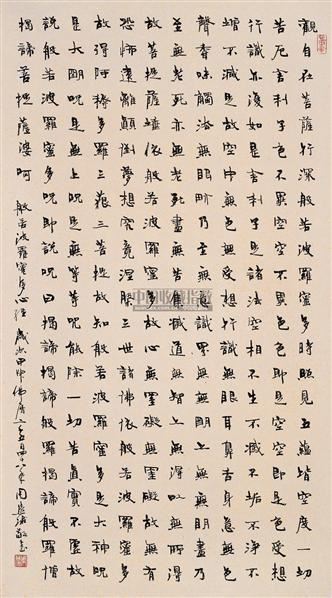 觀自在菩薩行深般若波羅蜜多時照見五蘊皆空度一切
苦厄舍利子色不異空空不異色色即是空空即是色受想
行識亦復如是舍利子是諸法空相不生不滅不垢不淨不
增不減是故空中無色無受想行識無眼耳鼻舌身意無色
聲香味觸法無眼界乃至無意識界無無明亦無無明盡乃
至無老死亦無老死盡無苦集滅道無智亦無得以無所得
故菩提薩埵依般若波羅蜜多故心無罣礙無罣礙故無有
恐怖遠離顛倒夢想究竟涅槃三世諸佛依般若波羅蜜多
故得阿耨多羅三藐三菩提故知般若波羅蜜多是大神呪
是大明呪是無上呪是無等等呪能除一切苦真實不虛故
說般若波羅蜜多呪即說呪曰揭諦揭諦般羅揭諦般羅僧
揭諦菩提薩婆呵
般若波羅蜜多心經 歲次甲申